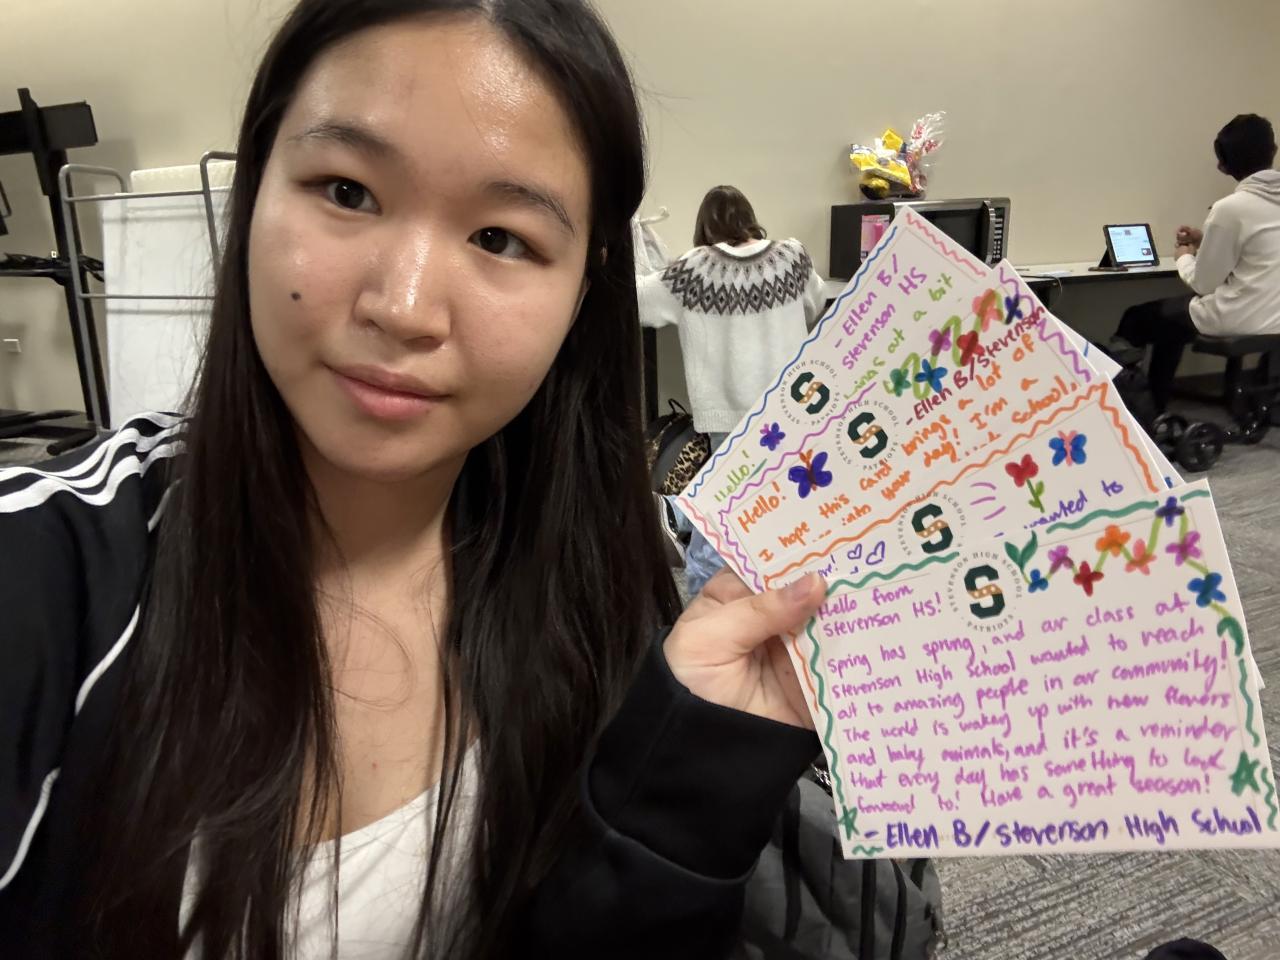 - Ellen B/
Stevenson HS
Lina out a bit
STEVENSON HIGH SCHOOL
PATRIOTS
Hello!
- Ellen B/Stevenson
STEVENSON HIGH SCHOOL
PATRIOTS
Hello!
I hope this card brings a lot of
into your day! I'm a
School,
STEVENSON HIGH SCHOOL
wanted to
Hello from
Stevenson HS!
STEVENSON HIGH SCHOOL
PATRIOTS
Spring has sprung, and our class at
Stevenson High School wanted to reach
out to amazing people in our community!
The world is waking up with new flowers
and baby animals, and it's a reminder
that every day has something to look
forward to! Have a great season!
- Ellen B/Stevenson High School